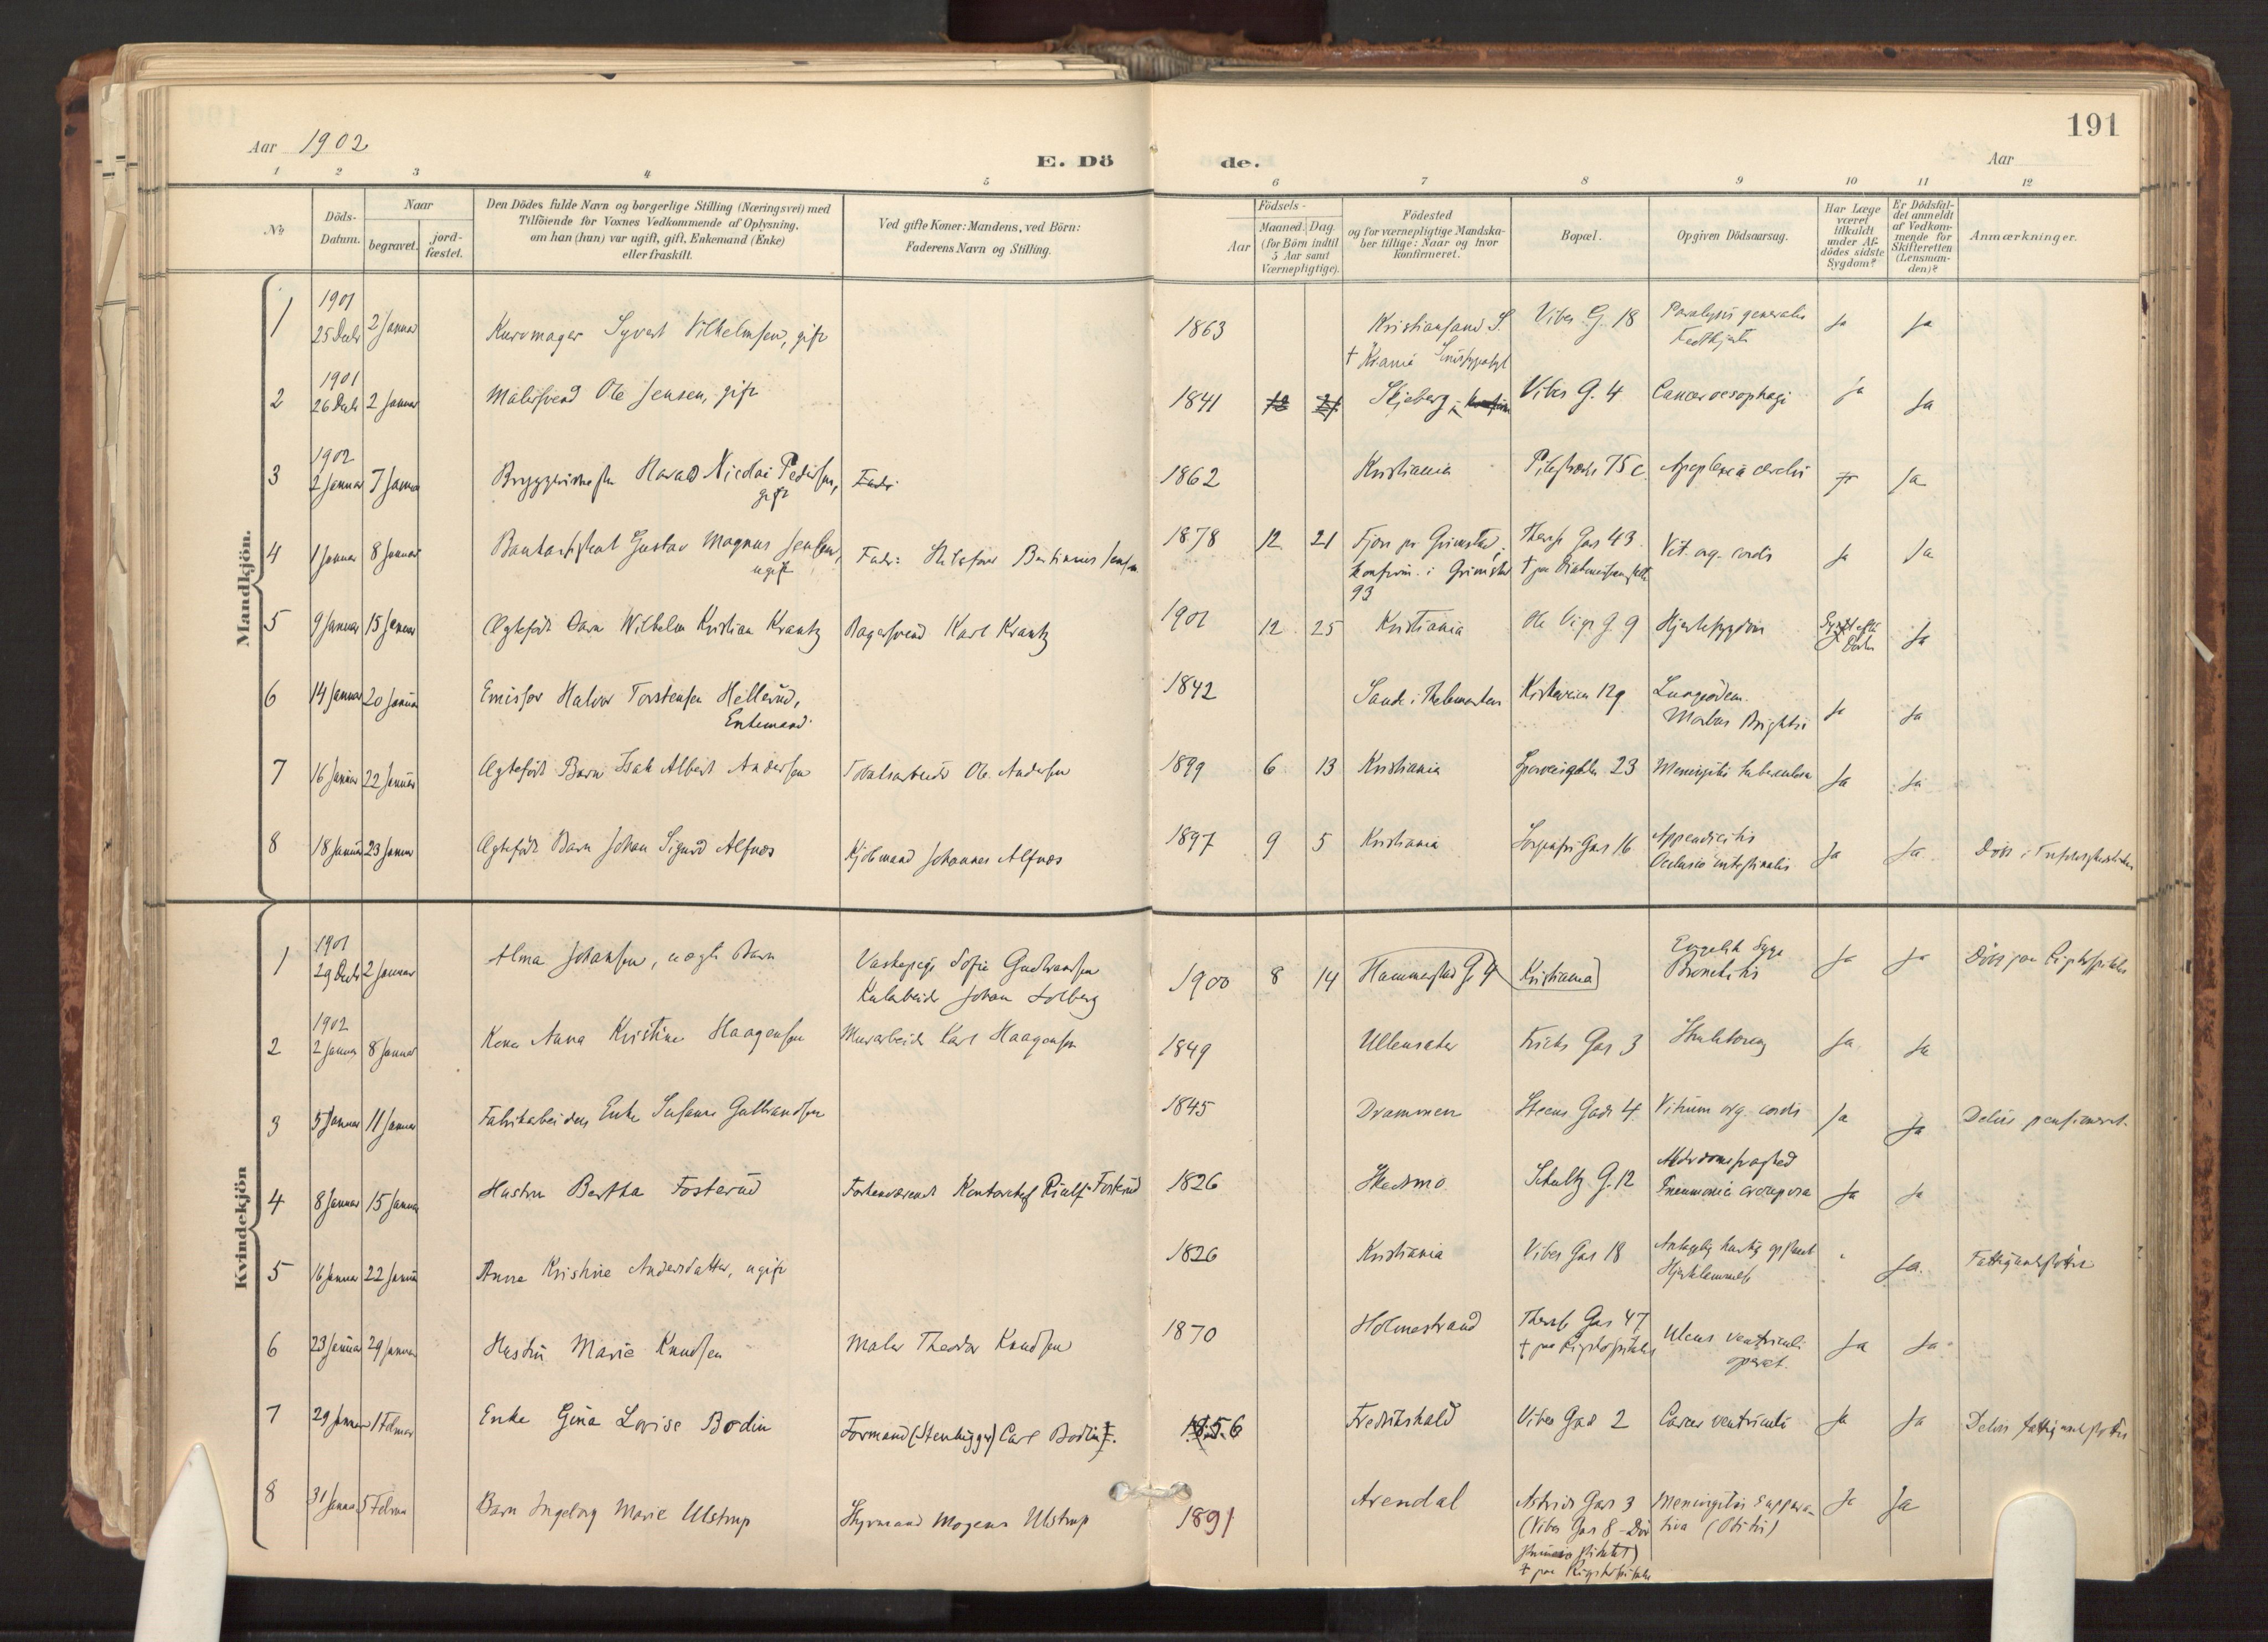 191
Aar 1902
E. Dö de.
Aar
1 2 3 4 5 6 7 8 9 10 11 12
No
Döds-
Datum.
Naar
begravet.
jord-
fæstet.
Den Dödes fulde Navn og borgerlige Stilling (Næringsvei) med
Tilföiende for Voxnes Vedkommende af Oplysning,
om han (hun) var ugift, gift, Enkemand (Enke)
eller fraskilt.
Ved gifte Koner: Mandens, ved Börn:
Faderens Navn og Stilling.
Födsels-
Aar
Maaned. Dag.
(for Börn indtil
5 Aar samt
Værnepligtige).
Födested
og for værnepligtige Mandska-
ber tillige: Naar og hvor
konfirmeret.
Bopæl.
Opgiven Dödsaarsag.
Har Læge
været
tilkaldt
under Af-
dödes sidste
Sygdom?
Er Dödsfal-
det anmeldt
af Vedkom-
mende for
Skifteretten
(Lensman-
den)?
Anmærkninger.
Mandkjön.
1 1901 25 Decbr 2 Januar Kurvmager Syvert Vilhelmsen, gift 1863 Kristiansand S. Vibes G. 18 Paralysis generalis Ja Ja
2 1901 26 Decb 2 Januar Malersvend Ole Jensen, gift 1841 12 21 Skjeberg Vibes G. 4 Cancer oesophagi Ja Ja
3 1902 2 Januar 7 Januar Bryggerimester Harald Nicolai Pedersen, Fader 1862 Kristiania Pilestræde 75 c. Apoplexia cerebri Ja Ja
gift
4 1 Januar 8 Januar Bankassistent Gustav Magnus Jensen, Fader: Bertinius Jensen 1878 12 21 Fjære pr Grimstad, Therese Gas 43. Vit. org. cordis Ja Ja
ugift
konfirm. i Grimstad
93
5 9 Januar 15 Januar Ægtefødt Barn Wilhelm Kristian Krantz Bagersvend Karl Krantz 1901 12 25 Kristiania Ole Vigs G 9 Hjertesygdom Ja
6 14 Januar 20 Januar Emissær Halvor Torstensen Hellerud, 1842 Sande i Thelemarken 129 Lungeödem Ja Ja
Enkemand
Morbus Brightii
7 16 Januar 22 Januar Ægteført Barn Isak Albert Andersen Tobaksarbeider Ole Andersen 1899 6 13 Kristiania 23 Meningitis tuberculosa Ja Ja
8 18 Januar 23 Januar Ægteført Barn Johan Sigurd Alfnæs Kjöbmand Johannes Alfnæs 1897 9 5 Kristiania Sorgenfri Gas 16 Appendicitis Ja Ja
Occlusio intestinalis
Kvindekjön
1 1901 29 Decbr 2 Januar Alma Johansen, uægte Barn Vaskepige Sofie Gulbrandsen 1900 8 14 Hammerstad G. 4 Kristiania Engelsk Syge Ja Ja Död paa Rigshospitalet
Johan Solberg
Bronchitis
2 1902 2 Januar 8 Januar Kone Anna Kristine Haagensen Murarbeider Karl Haagensen 1849 Ullensaker Frichs Gas 3 Ja Ja
3 5 Januar 11 Januar Fabrikarbeiders Enke Susanne Gulbrandsen 1845 Drammen Steens Gade 4. Vitium org. cordis Ja Ja Delvis pensioneret.
4 8 Januar 15 Januar Hustru Bertha Fosterud Forhenværende Kontorchef Fosterud 1826 Skedsmo Schultz G. 12 Alderdomssvaghed Ja Ja
Pneumonia crouposa
5 16 Januar 22 Januar Anne Kristine Andersdatter, ugift 1826 Kristiania Vibes Gas 18 Antagelig hurtig opstaaet Ja. Fattigunderstöttet
Hjertelammelse
6 23 Januar 29 Januar Hustru Marie Knudsen Maler Theodor Knudsen 1870 Holmestrand Therese Gas 47 Ulcus ventriculi Ja Ja
† paa Rigshospitalet operat.
7 29 Januar 1 Februar Enke Gina Lovise Bodin Formand (Stenhugger) Carl Bodin †. 1856 Fredrikshald Vibes Gad 2 Cancer ventriculi Ja Ja Delvis fattigunderstöttet
8 31 Januar 5 Februar Barn Ingeborg Marie Ulstrup Styrmand Mogens Ulstrup 1891 Arendal Astrids Gas 3 Meningitis suppura- Ja Ja
(Vibes Gas 8 - Döv tiva (Otitis)
† paa Rigshospitalet